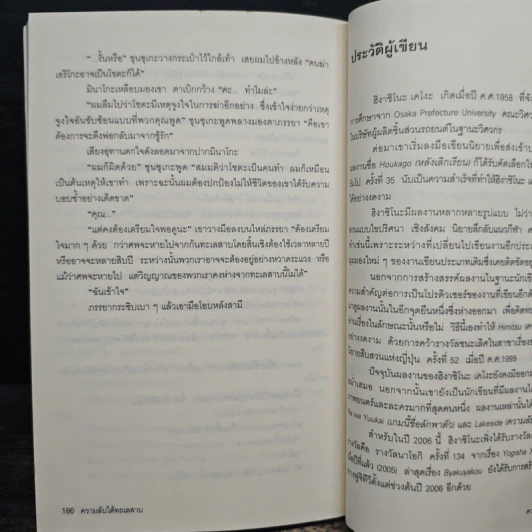 "...งั้นหรือ" ชุนซุเกะวางกระเป๋าไว้ใกล้เท้า เสยผมไปข้างหลัง "คนฆ่า
เอริโกะอาจเป็นโชตะก็ได้"
มินาโกะเหลือบมองเขา ตาเบิกกว้าง "คะ... ทำไมล่ะ"
"ผมลืมไปว่าโชตะมีเหตุจูงใจในการฆ่าอีกอย่าง ซึ่งเข้าใจง่ายกว่าเหตุ
จูงใจอันซับซ้อนแบบที่พวกคุณพูด" ชุนซุเกะพูดพลางมองตาภรรยา "คือเขา
ต้องการจะดึงพ่อกลับมาจากชู้รัก"
เสียงอุทานตกใจดังลอดมาจากปากมินาโกะ
"ผมก็ผิดด้วย" ชุนซุเกะพูด "สมมติว่าโชตะเป็นคนทำ ผมก็เหมือน
เป็นต้นเหตุให้เขาทำ เพราะฉะนั้นผมต้องปกป้องไม่ให้ชีวิตของเขาได้รับความ
บอบช้ำอย่างเด็ดขาด"
"คุณ..."
"แต่คงต้องเตรียมใจพอดูนะ" เขาวางมือลงบนไหล่ภรรยา "ต้องเตรียม
ใจมาก ๆ ด้วย กว่าศพจะหายไปจากก้นทะเลสาบโดยสิ้นเชิงต้องใช้เวลาหลายปี
หรืออาจจะหลายสิบปี ระหว่างนั้นพวกเราอาจจะต้องอยู่อย่างหวาดระแวง หรือ
แม้ว่าศพจะหายไป แต่วิญญาณของพวกเราคงห่างจากทะเลสาบนี้ไม่ได้"
"ฉันเข้าใจ"
ภรรยากระซิบเบา ๆ แล้วเอามือโอบหลังสามี
186 ความลับใต้ทะเลสาบ
ประวัติผู้เขียน
ฮิงาชิโนะ เคโงะ เกิดเมื่อปี ค.ศ.1958 ที่จัง
การศึกษาจาก Osaka Prefecture University คณะวิศว
ในบริษัทผู้ผลิตชิ้นส่วนรถยนต์ในฐานะวิศวกร
ต่อมาเขาเริ่มลงมือเขียนนิยายเพื่อส่งเข้าป
ผลงานชื่อ Houkago (หลังเลิกเรียน) ก็ได้รับคัดเลือกใ
ครั้งที่ 35 นับเป็นความสำเร็จที่ทำให้ฮิงาชิโนะ เ
ได้อย่างงดงาม
ฮิงาชิโนะมีผลงานหลากหลายรูปแบบ ไม่ว่า
แบบไขปริศนา เชิงสังคม นิยายลึกลับแนวกีฬา
เช่นนี้เพราะระหว่างที่เปลี่ยนไปเขียนงานอีกประเ
มุมมองใหม่ ๆ ของงานเขียนประเภทเดิมซึ่งเคยติดขัดอยู่
นอกจากการสร้างสรรค์ผลงานในฐานะนักเขีย
ความสำคัญต่อการเป็นโปรดิวเซอร์ของงานที่เขียนอีกด้
ผลงานเล่มนั้นอยู่อีกจุดยืนหนึ่งซึ่งห่างออกมา เพื่อคิดทบ
เรื่องในลักษณะนั้นหรือไม่ วิธีนี้เองทำให้ Himitsu
อย่างงดงาม ด้วยการคว้ารางวัลชนะเลิศในสาขาเรื่อง
นิยายสืบสวนแห่งญี่ปุ่น ครั้งที่ 52 เมื่อปี ค.ศ.1999
ปัจจุบันผลงานของฮิงาชิโนะ เคโงะยังคงมีออกมา
สม่ำเสมอ นอกจากนั้นเขายังเป็นนักเขียนที่มีผลงานได้
ภาพยนตร์และละครมากที่สุดคนหนึ่ง ผลงานเหล่านั้นได้
wa Yuukai (เกมนี้ชื่อลักพาตัว) และ Lakeside (ความลับ
สำหรับในปี 2006 นี้ ฮิงาชิโนะเพิ่งได้รับรางวัล
รางวัลคือ รางวัลนาโอกิ ครั้งที่ 134 จากเรื่อง Yogisha
เมื่อปีที่แล้ว (2005) ล่าสุดเรื่อง Byakuyakou ยังได้รับการสร้
ทางทีวีตั้งแต่ช่วงต้นปี 2006 อีกด้วย